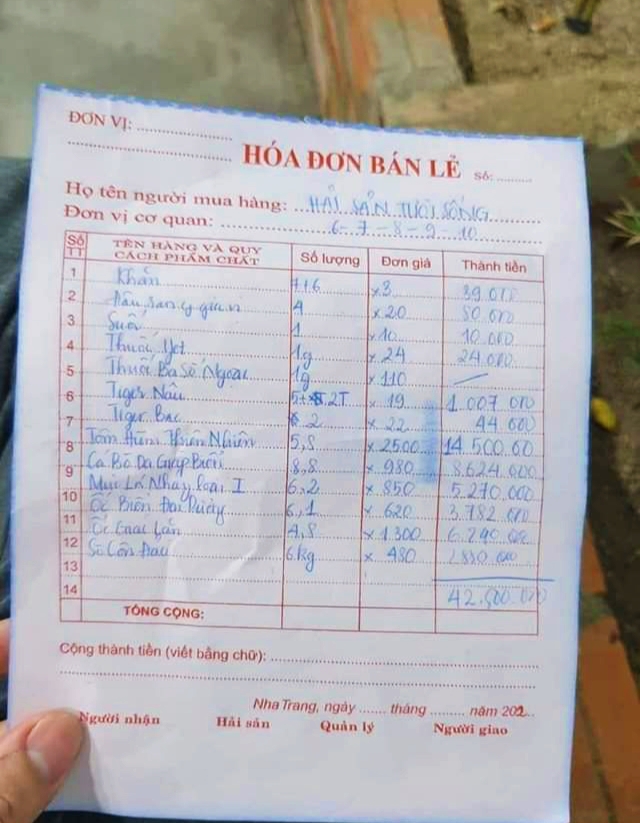 ĐƠN VỊ: ....................
HÓA ĐƠN BÁN LẺ Số: ..........
Họ tên người mua hàng: HẢI SẢN TƯƠI SỐNG
Đơn vị cơ quan: 6-7-8-9-10
Số TT TÊN HÀNG VÀ QUY CÁCH PHẨM CHẤT Số lượng Đơn giá Thành tiền
1 Khăn 7+6 x3 39.000
2 4 x20 80.000
3 Suối 1 x10 10.000
4 Thuốc 1g x24 24.000
5 Thuốc Ba Số Ngoại 1g x110 —
6 Tiger Nâu 5+ 2T x19 1.007 000
7 Tiger Bạc 2 x22 44.000
8 Tôm Hùm Thiên Nhiên 5,8 x2500 14.500.00
9 Cá Bò Da Giáp Biển 8,8 x980 8.624.000
10 Mực Lá Nháy Loại I 6,2 x850 5.270.000
11 Ốc Biển 6,1 x620 3.782.000
12 Ốc Gaac Lần 4,8 x1300 6.290 000
13 Sò Côn Đảo 6kg x480 2880 000
14 42.500.000
TỔNG CỘNG:
Cộng thành tiền (viết bằng chữ): ....................
Nha Trang, ngày ....... tháng ......... năm 202...
Người nhận Hải sản Quản lý Người giao